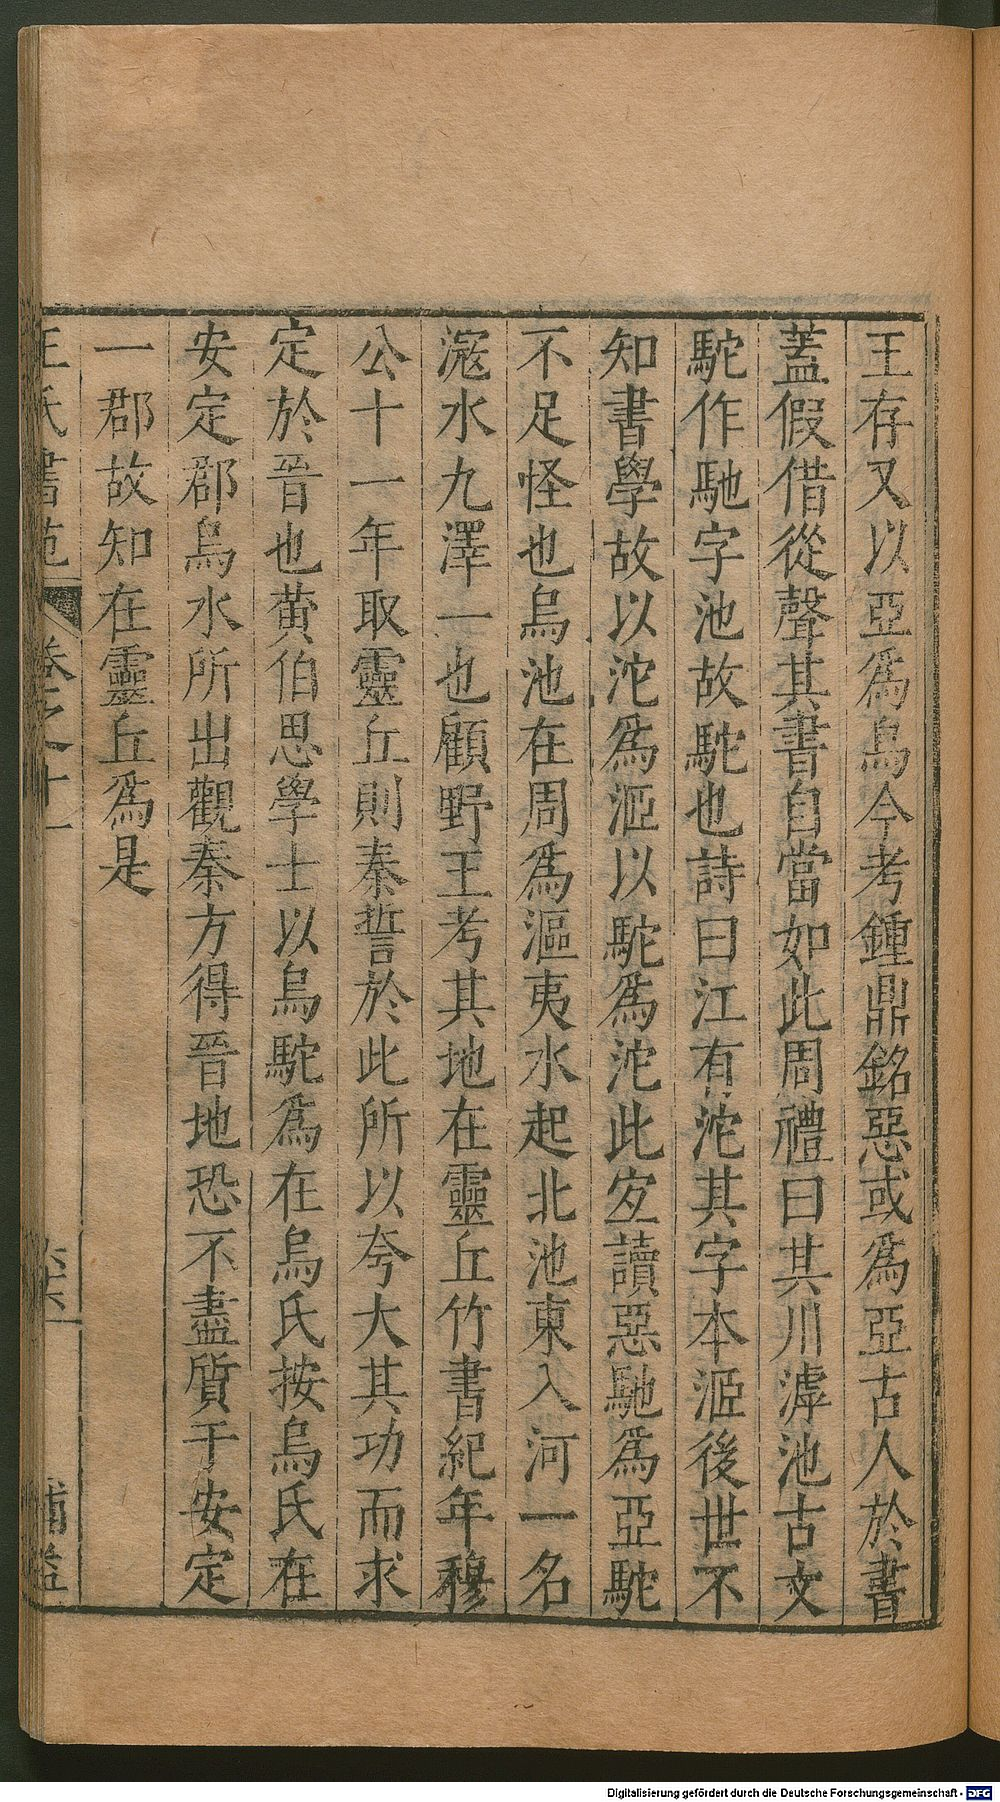 王存又以亞爲烏今考鍾鼎銘惡或爲亞古人於書
蓋假借從聲其書自當如此周禮曰其川滹池古文
駝作馳字池故駝也詩曰江有沱其字本洍後世不
知書學故以沱爲洍以駝爲沱此㝎讀惡馳爲亞駝
不足怪也烏池在周爲漚夷水起北池東入河一名
滱水九澤一也顧野王考其地在靈丘竹書紀年穆
公十一年取靈丘則秦誓於此所以夸大其功而求
定於晉也黄伯思學士以烏駝爲在烏氏按烏氏在
安定郡烏水所出觀秦方得晉地恐不盡質于安定
一郡故知在靈丘爲是
王氏書苑
卷之十一
補益
Digitalisierung gefördert durch die Deutsche Forschungsgemeinschaft - DFG